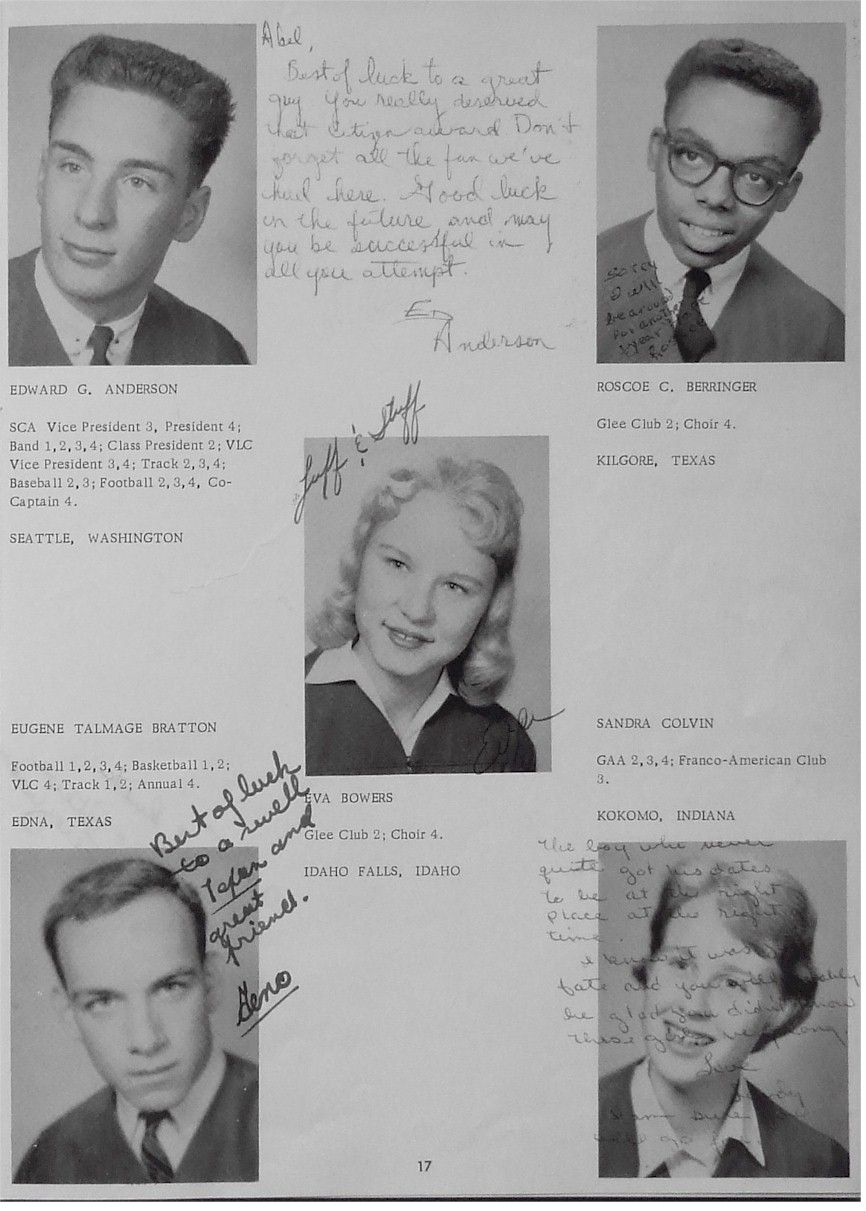 Abel,
Best of luck to a great
guy You really deserved
that citizen award Don't
forget all the fun we've
had here. Good luck
in the future and may
you be successful in
all you attempt.
Ed
Anderson
EDWARD G. ANDERSON
SCA Vice President 3, President 4;
Band 1,2,3,4; Class President 2; VLC
Vice President 3,4; Track 2,3,4;
Baseball 2,3; Football 2,3,4, Co-
Captain 4.
SEATTLE, WASHINGTON
Sorry
I will
be around
for another
year
Roscoe
ROSCOE C. BERRINGER
Glee Club 2; Choir 4.
KILGORE, TEXAS
Luff & Stuff
Eva
EVA BOWERS
Glee Club 2; Choir 4.
IDAHO FALLS, IDAHO
EUGENE TALMAGE BRATTON
Football 1,2,3,4; Basketball 1,2;
VLC 4; Track 1,2; Annual 4.
EDNA, TEXAS
Best of luck
to a swell
Texan and
great
friend.
Geno
SANDRA COLVIN
GAA 2,3,4; Franco-American Club
3.
KOKOMO, INDIANA
The boy who never
quite got his dates
to be at the right
place at the right
time.
I know it was
fate and you will
be glad you didn't know
these girls very long.
Love
Sandy
I am sure you
will go far
17